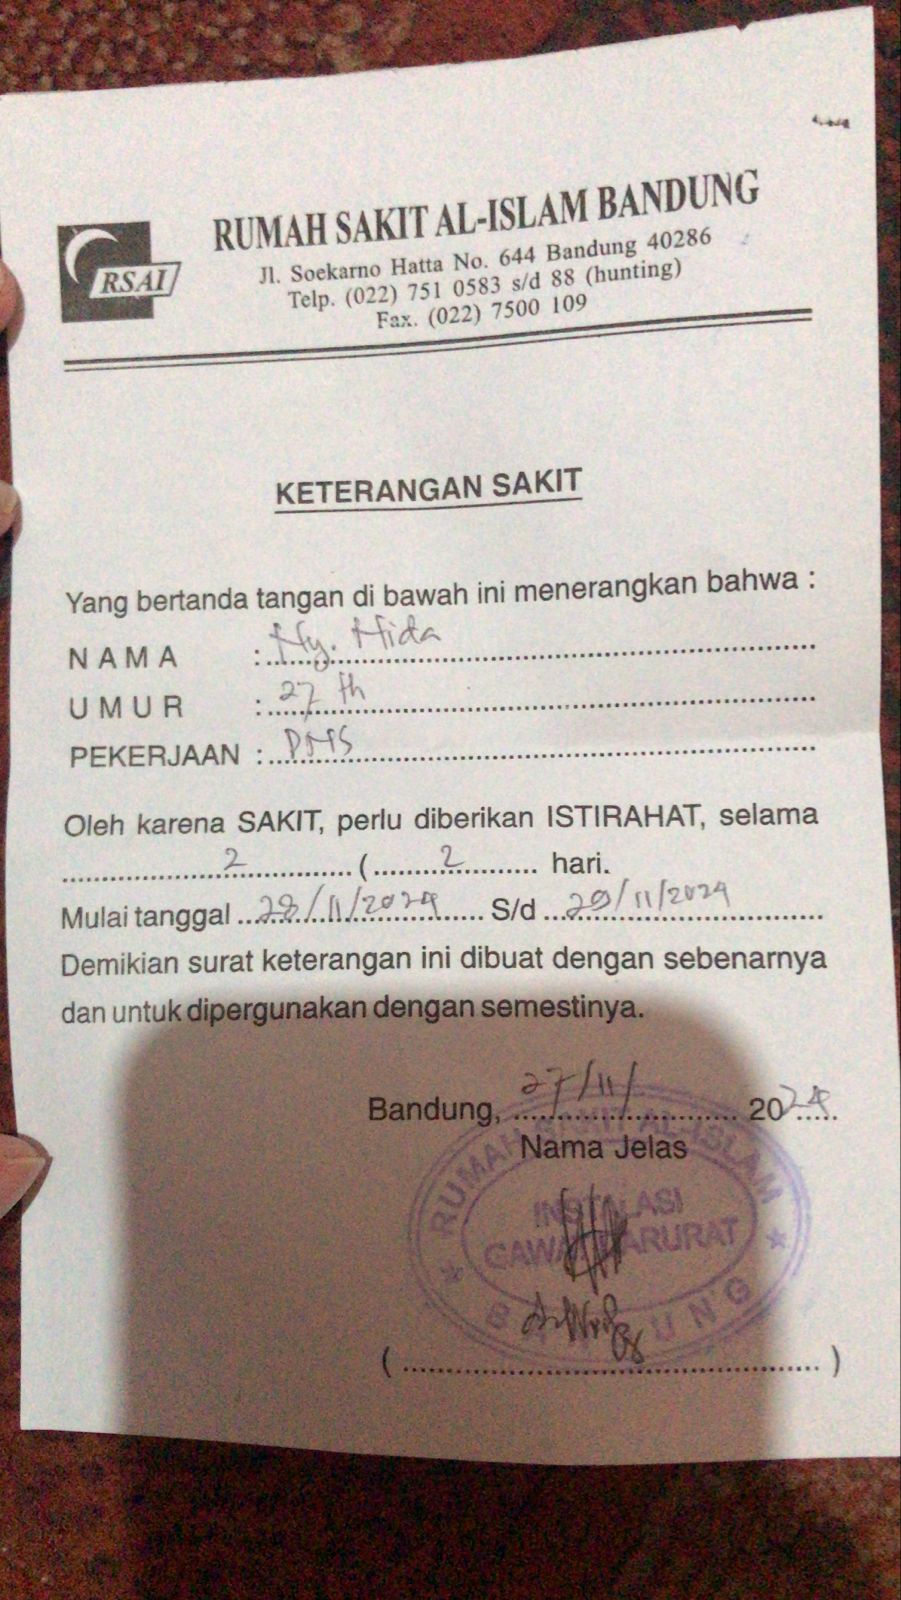 RSAI
RUMAH SAKIT AL-ISLAM BANDUNG
Jl. Soekarno Hatta No. 644 Bandung 40286
Telp. (022) 751 0583 s/d 88 (hunting)
Fax. (022) 7500 109
KETERANGAN SAKIT
Yang bertanda tangan di bawah ini menerangkan bahwa :
N A M A : Ny. Nida
U M U R : 27 th
PEKERJAAN : PNS
Oleh karena SAKIT, perlu diberikan ISTIRAHAT, selama
2 ( 2 hari.
Mulai tanggal 28/11/2024 S/d 29/11/2024
Demikian surat keterangan ini dibuat dengan sebenarnya
dan untuk dipergunakan dengan semestinya.
Bandung, 27/11/ 2024
Nama Jelas
RUMAH SAKIT AL-ISLAM
INSTALASI
GAWAT DARURAT
BANDUNG
(........................................)